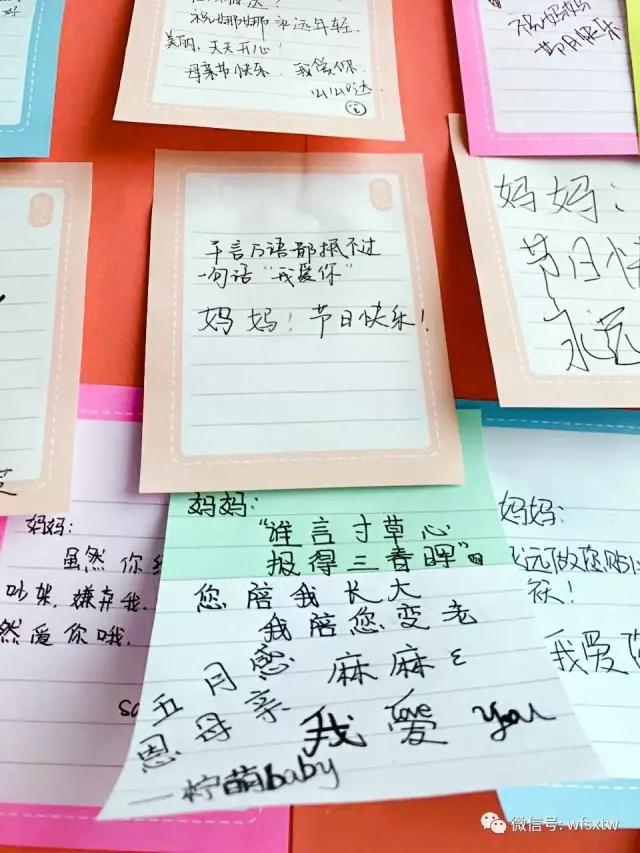 祝娜娜永远年轻
美丽，天天开心！
母亲节快乐，我爱你
么么哒
祝妈妈
节日快乐
千言万语都抵不过
一句话“我爱你”
妈妈！节日快乐！
妈妈：
节日快
永远
妈妈：
虽然你
吵架，嫌弃我
然爱你哦
妈妈：
“谁言寸草心
报得三春晖”
您陪我长大
我陪您变老
五月感
恩母亲
麻麻
我爱 love you
—柠萌baby
妈妈：
永远做您贴
袄！
我爱您
微信号: wfsxtw